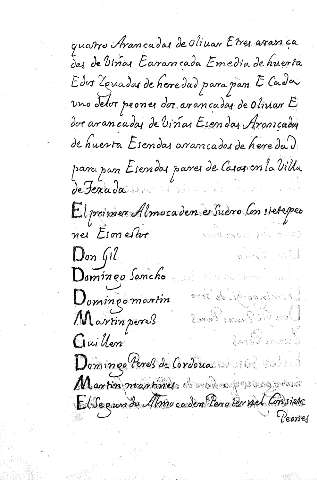 quatro Arancadas de Oliuar E tres aranca
das de Viñas E arancada E media de huerta
E dos Yguadas de heredad para pan E Cada
vno delos peones dos arancadas de oliuar E
dos arancadas de Viñas E sendas Arancadas
de huerta E sendas arancadas de heredad
para pan E sendas pares de Casas en la Villa
de Texada
El primer Almocaden es Suero Con siete peo
nes E son estos
Don Gil
Domingo Sancho
Domingo martin
Martin peres
Guillen
Domingo Peres de Cordoua
Martin martines
El Segundo Almocaden Pero Con siete
Peones